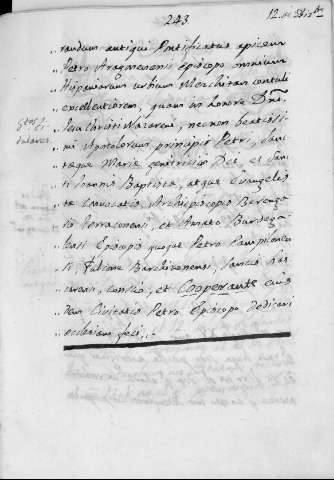 243
12. de Dizbre
„ randum antiqui Pontificatus apicem
„ Petro Aragonensis Episcopo omnium
„ Hispaniarum urbium Merchitam contuli
„ excellentiorem, quam in honore Dni.
Stos Ti
tulares.
„ Jesu Christi Nazareni, necnon beatissi-
„ mi Apostolorum principis Petri, Sanc
„ tæque Mariæ genitricis Dei, et San
„ ti Joannis Baptista, atque Evangelis
„ ta convocatis Archiepiscopis Berenga
„ rio Terraconensi, et Amato Burdega
„ lensi Episcopis quoque Petro Pampilonen
„ si, Fulcone Barchinonensi, Sancio Las
„ carensi, et Cooperante ejus
„ dem Civitatis Petro Episcopo dedicari
„ ecclesiam feci.